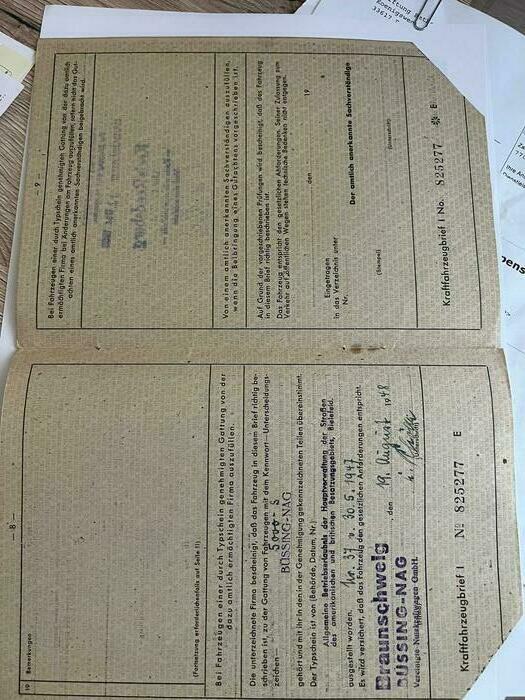 — 8 —
19 Bemerkungen
(Fortsetzung erforderlichenfalls auf Seite 11)
Bei Fahrzeugen einer durch Typschein genehmigten Gattung von der
dazu amtlich ermächtigten Firma auszufüllen.
Die unterzeichnete Firma bescheinigt, daß das Fahrzeug in diesem Brief richtig be-
schrieben ist, zu der Gattung von Fahrzeugen mit dem Kennwort—Unterscheidungs-
zeichen— 5000-S
BÜSSING-NAG
gehört und mit ihr in den in der Genehmigung gekennzeichneten Teilen übereinstimmt.
Der Typschein ist von (Behörde, Datum, Nr.)
Allgemeine Betriebserlaubnis der Hauptverwaltung der Straßen
des amerikanischen und britischen Besatzungsgebiets, Bielefeld.
ausgestellt worden. No. 37 v. 30.5.1947
Es wird versichert, daß das Fahrzeug den gesetzlichen Anforderungen entspricht.
Braunschweig den 19. August 1948
BÜSSING-NAG
Vereinigte Nutzkraftwagen GmbH.
Kraftfahrzeugbrief I No 825277 E
— 9 —
Bei Fahrzeugen einer durch Typschein genehmigten Gattung von der dazu amtlich
ermächtigten Firma bei Änderungen am Fahrzeug auszufüllen, sofern nicht das Gut-
achten eines amtlich anerkannten Sachverständigen beigebracht wird.
Von einem amtlich anerkannten Sachverständigen auszufüllen,
wenn die Beibringung eines Gutachtens vorgeschrieben ist.
Auf Grund der vorgeschriebenen Prüfungen wird bescheinigt, daß das Fahrzeug
in diesem Brief richtig beschrieben ist.
Das Fahrzeug entspricht den gesetzlichen Anforderungen. Seiner Zulassung zum
Verkehr auf öffentlichen Wegen stehen technische Bedenken nicht entgegen.
den 19
Eingetragen
in das Verzeichnis unter
Nr.
Der amtlich anerkannte Sachverständige
(Stempel)
(Unterschrift)
Kraftfahrzeugbrief I No. 825277 E
33617